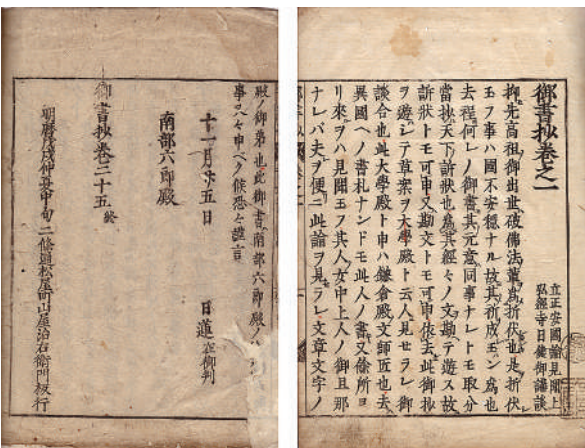 御書抄卷之一
立正安國論見聞上
弘經寺日健御講談
抑先高祖御出世破佛法之黨為折伏也是折伏
玉フ事ハ國不安穩ナル故其祈成玉ン為也
去程何レノ御書其元意同事ナレトモ取分
當抄天下訴狀也為其經々ノ文勘テ遊ス故
訴狀トモ可申又勘文トモ可申依去此御抄
ヲ遊シテ草案ヲ大學殿ト云人見セラレ御
談合也此大學殿ト申ハ鎌倉殿文師匠也去
異國ヘノ書札ナンドモ此人ノ書又餘所ヨ
リ來ヲハ見聞玉フ其人女中上人ノ御旦那
ナレバ夫ヲ便ニ此論ヲ見ラレ文章文字ノ
殿ノ御弟也此御書南部六郎殿ノ
事ハ々申ヘク候恐々謹言
十一月廿五日
日蓮在御判
南部六郎殿
御書抄卷二十五終
明曆戊戌仲夏中旬二條通松屋町山屋治右衛門板行